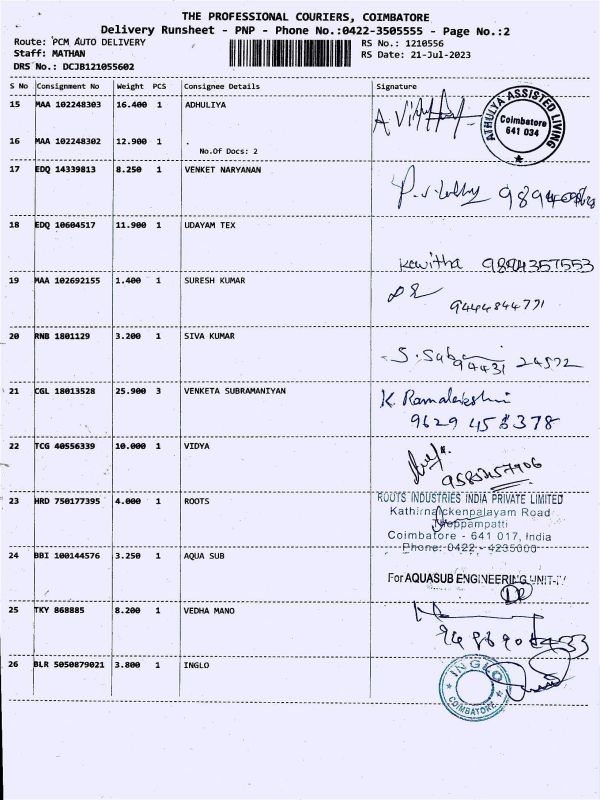 THE PROFESSIONAL COURIERS, COIMBATORE
Delivery Runsheet - PNP - Phone No.:0422-3505555 - Page No.:2
Route: PCM AUTO DELIVERY
RS No.: 1210556
Staff: MATHAN
RS Date: 21-Jul-2023
DRS No.: DCJB121055602
S No Consignment No Weight PCS Consignee Details Signature
15 MAA 102248303 16.400 1 ADHULIYA
ATHULYA ASSISTED LIVING
Coimbatore
641 034
16 MAA 102248302 12.900 1 .
No.Of Docs: 2
17 EDQ 14339813 8.250 1 VENKET NARYANAN
18 EDQ 10604517 11.900 1 UDAYAM TEX
Kavitha 9894357553
19 MAA 102692155 1.400 1 SURESH KUMAR
9444844771
20 RNB 1801129 3.200 1 SIVA KUMAR
94431 24572
21 CGL 18013528 25.900 3 VENKETA SUBRAMANIYAN
K. Ramalakshmi
9629 458378
22 TCG 40556339 10.000 1 VIDYA
23 HRD 750177395 4.000 1 ROOTS
ROOTS INDUSTRIES INDIA PRIVATE LIMITED
Kathirnaickenpalayam Road
Thoppampatti
Coimbatore - 641 017, India
Phone: 0422 - 4235000
24 BBI 100144576 3.250 1 AQUA SUB
For AQUASUB ENGINEERING UNIT-IV
25 TKY 868885 8.200 1 VEDHA MANO
26 BLR 5050879021 3.800 1 INGLO
INGLO
COIMBATORE